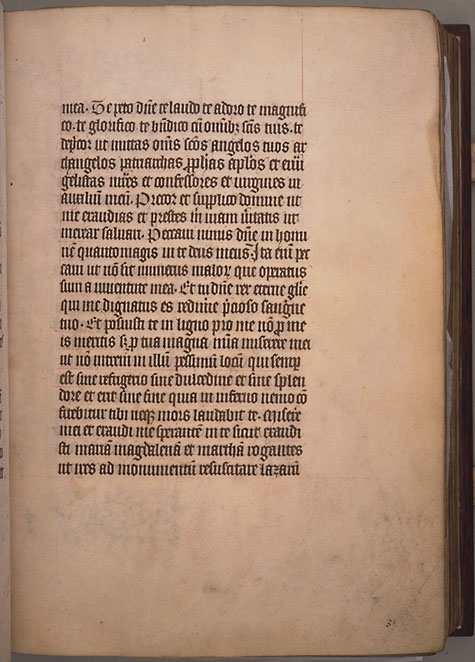 mea. Te peto dñe te laudo te adoro te magnifi
co. te glorifico te bñdico cũ om̃ibȝ sc̃is tuis. te
dep̃cor ut mittas om̃s sc̃os angelos tuos ar
changelos patriarchas ꝓph̃as ap̃los et euũ
gelistas mr̃es et confessores et uirgines in
auxiliũ meũ. Precor et supplico domine ut
me exaudias et prestes in uiam ut
merear saluari. Peccaui nimis dñe in homi
nẽ quanto magis in te deus meus. Ita em̃ pec
caui ut nõ sit numerus maloꝝ que operatus
sum a iuuentute mea. Et tu dñe rex eterne glie
qui me dignatus es redim̃e p̃cioso sanguine
tuo. Et posuisti te in ligno pro me nõ ꝓ me
is meritis sȝ ꝓ tua magna mĩa miserere mei
ut nõ intrem in illũ pessimũ locũ qui semꝑ
est sine refugerio sine dulcedine et sine splen
dore et erit sine fine quia in inferno nemo cõ
fitebitur tibi neqȝ mors laudabit te. Misere
mei et exaudi me sperantẽ in te sicut exaudi
sti mariã magdalenã et marthã rogantes
ut ires ad monumentũ resuscitare lazarũ